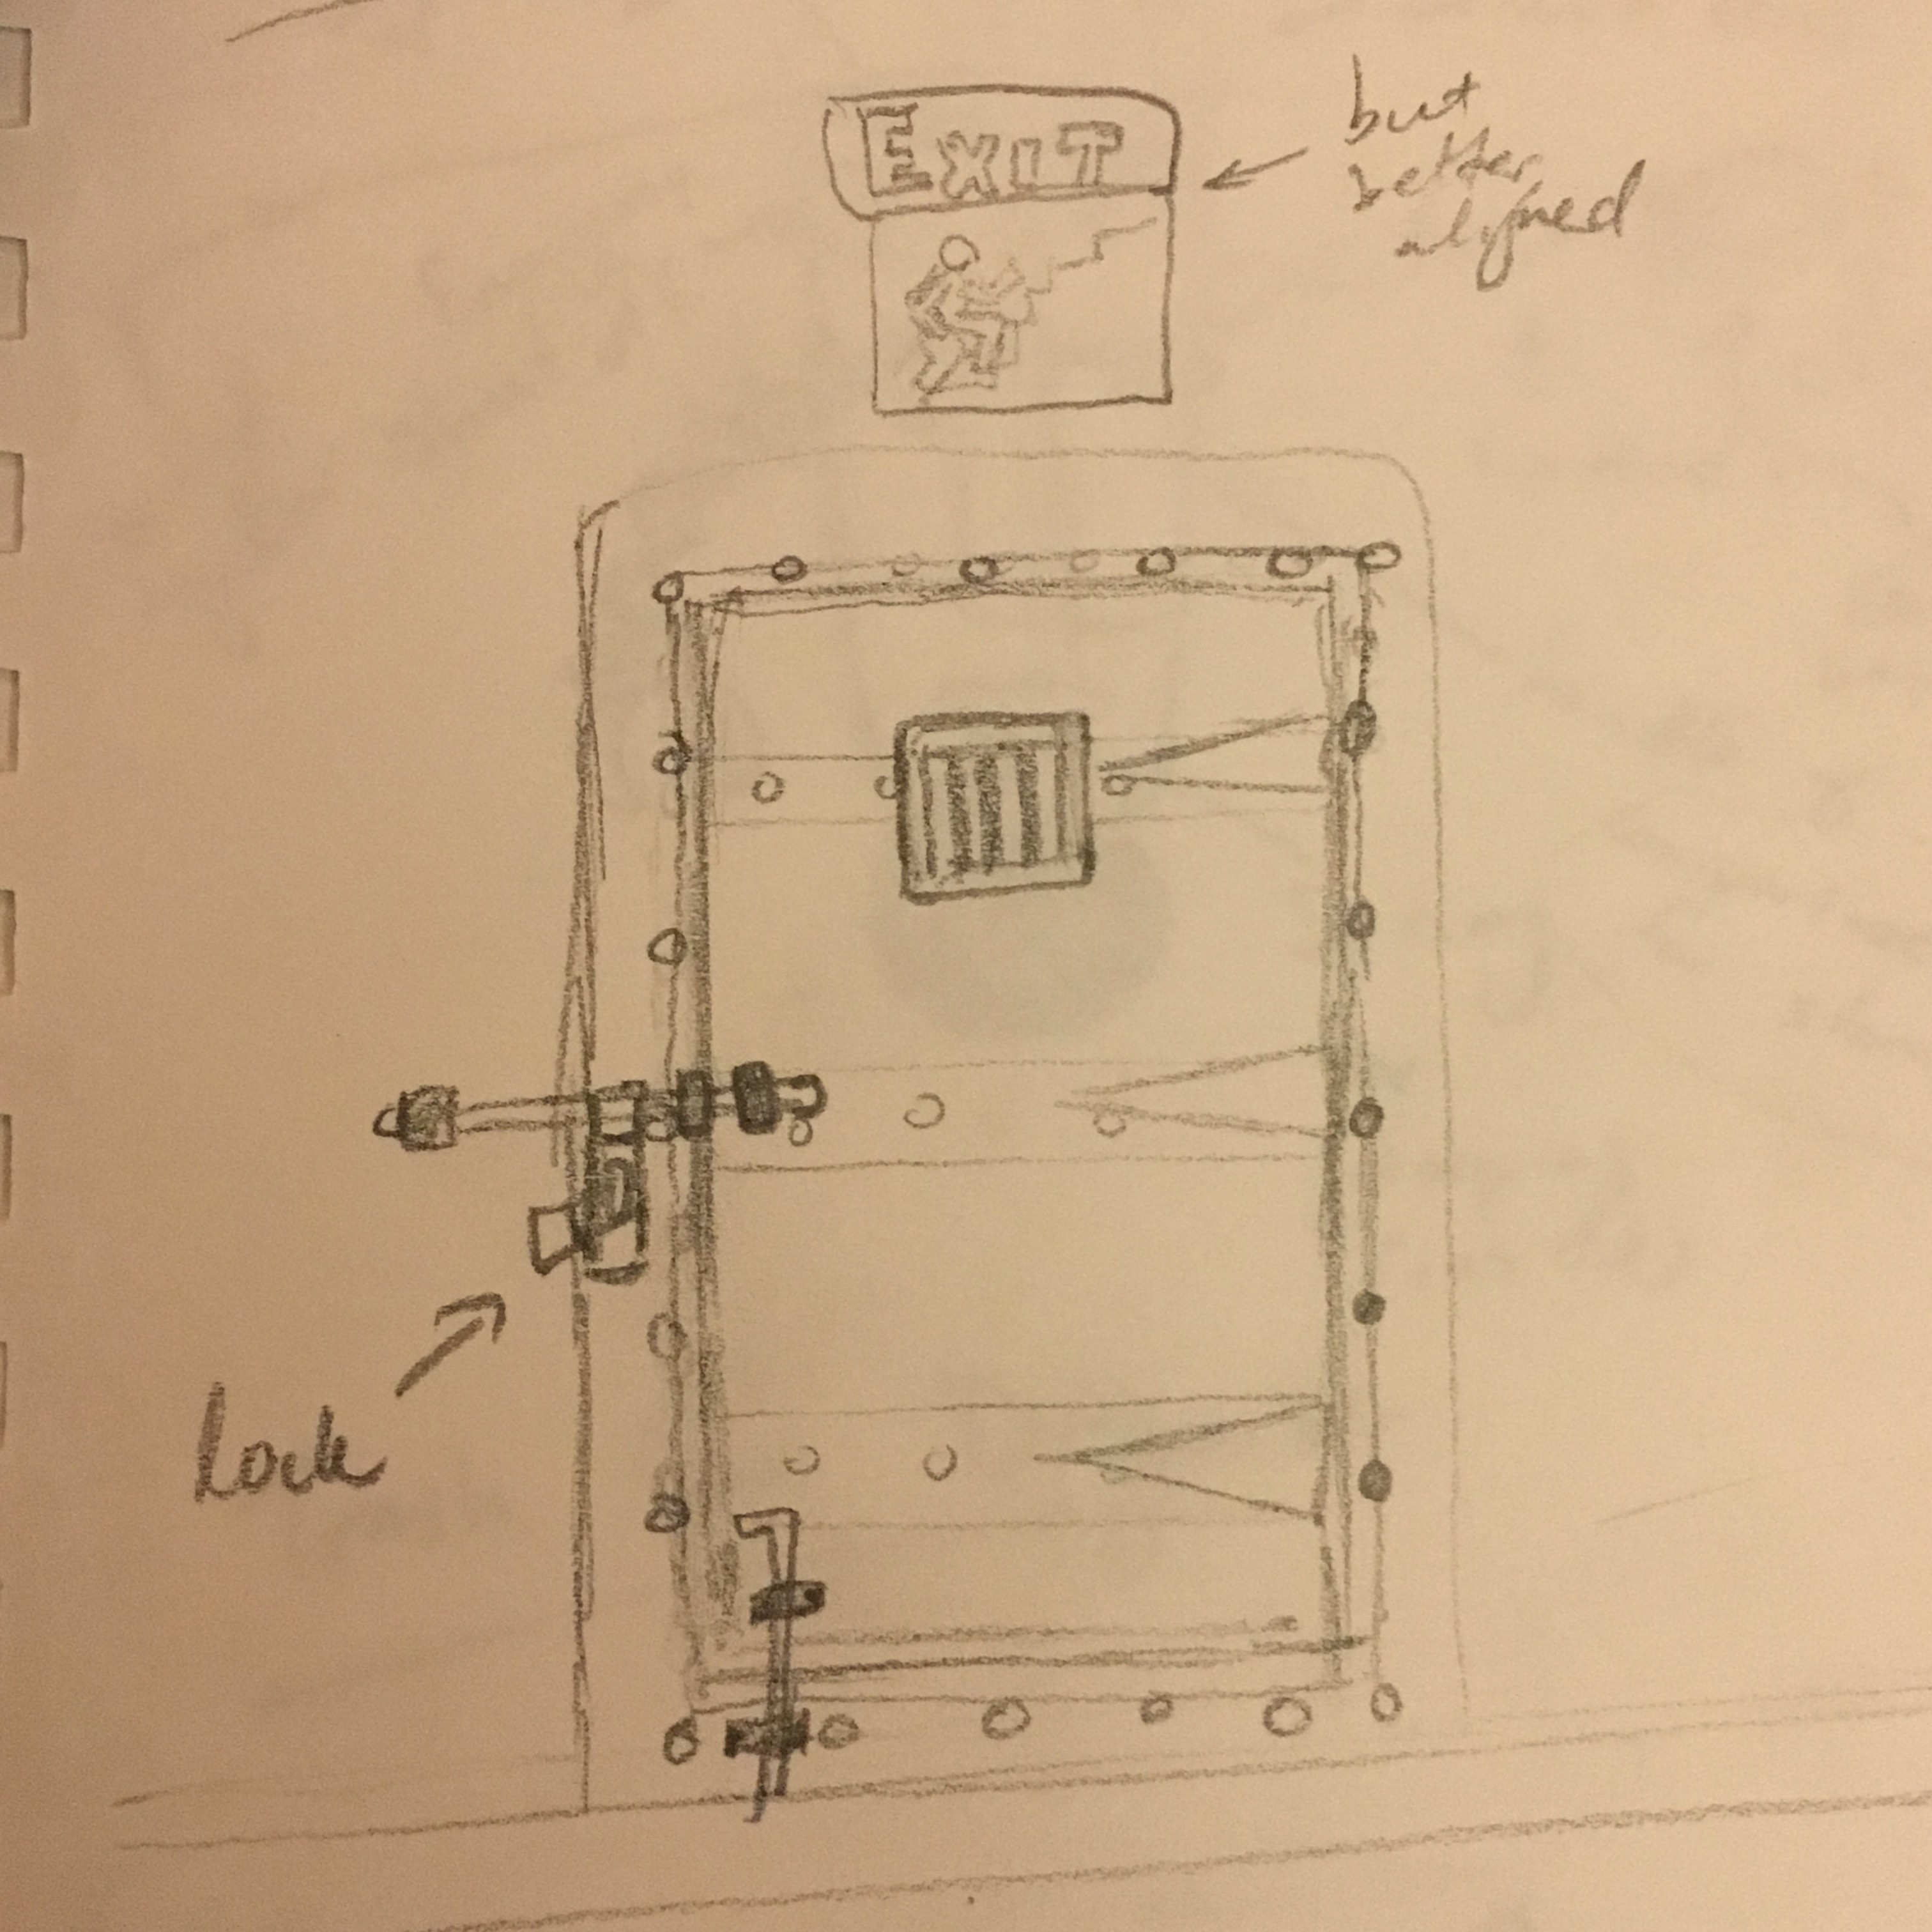 EXIT
but
better
aligned
Lock